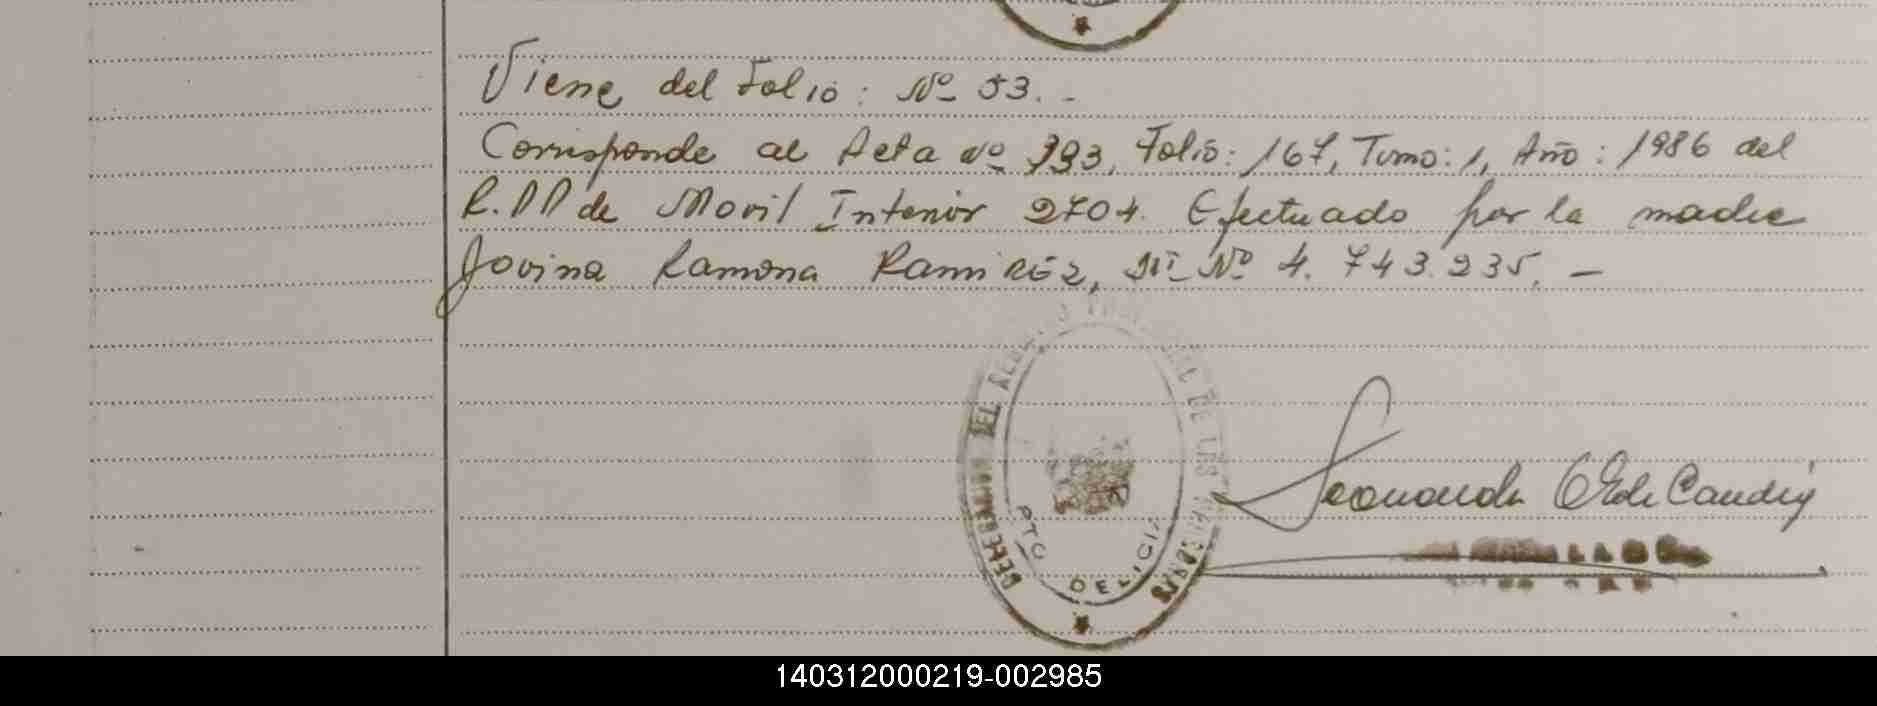 Viene del Folio: Nº 53.-
Corresponde al Acta Nº 393, Folio: 167, Tomo: 1, Año: 1986 del
R.PP de Movil Interior 2704. Efectuado por la madre
Jovina Ramona Ramirez, Nº 4.743.235.-
DELEGACION DEL REGISTRO PROVINCIAL DE LAS PERSONAS
PTO DELICIA
140312000219-002985